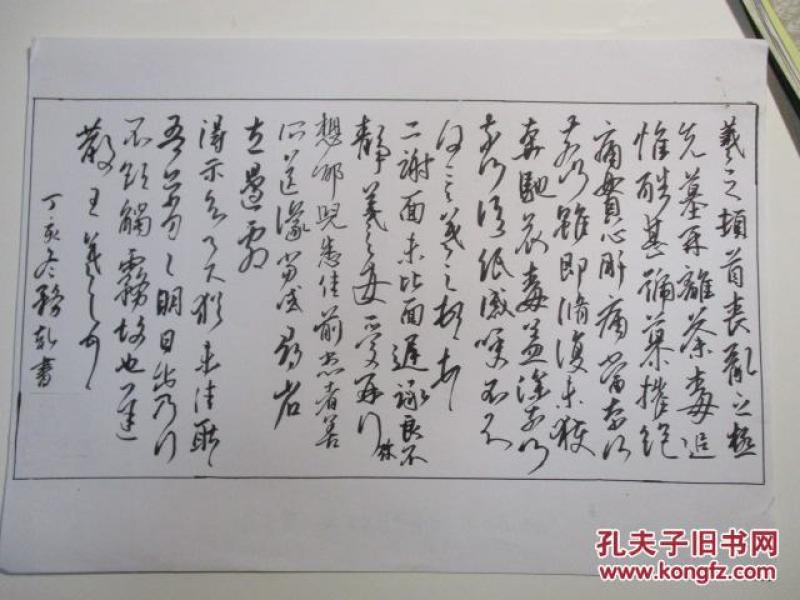 羲之頓首喪亂之極
先墓再離荼毒追
惟酷甚號慕摧絕
痛貫心肝痛當奈何
奈何雖即脩復未獲
奔馳哀毒益深奈何
奈何臨紙感哽不知
何言羲之頓首頓首
二謝面未比面遲詠良不
靜羲之女愛再拜
想邪兒悉佳前患者善
所送議當試尋省
左邊劇
得示知足下猶未佳耿耿
吾亦劣々明日出乃行
不欲觸霧故也遲
散王羲之頓首
丁亥冬書
孔夫子旧书网
www.kongfz.com